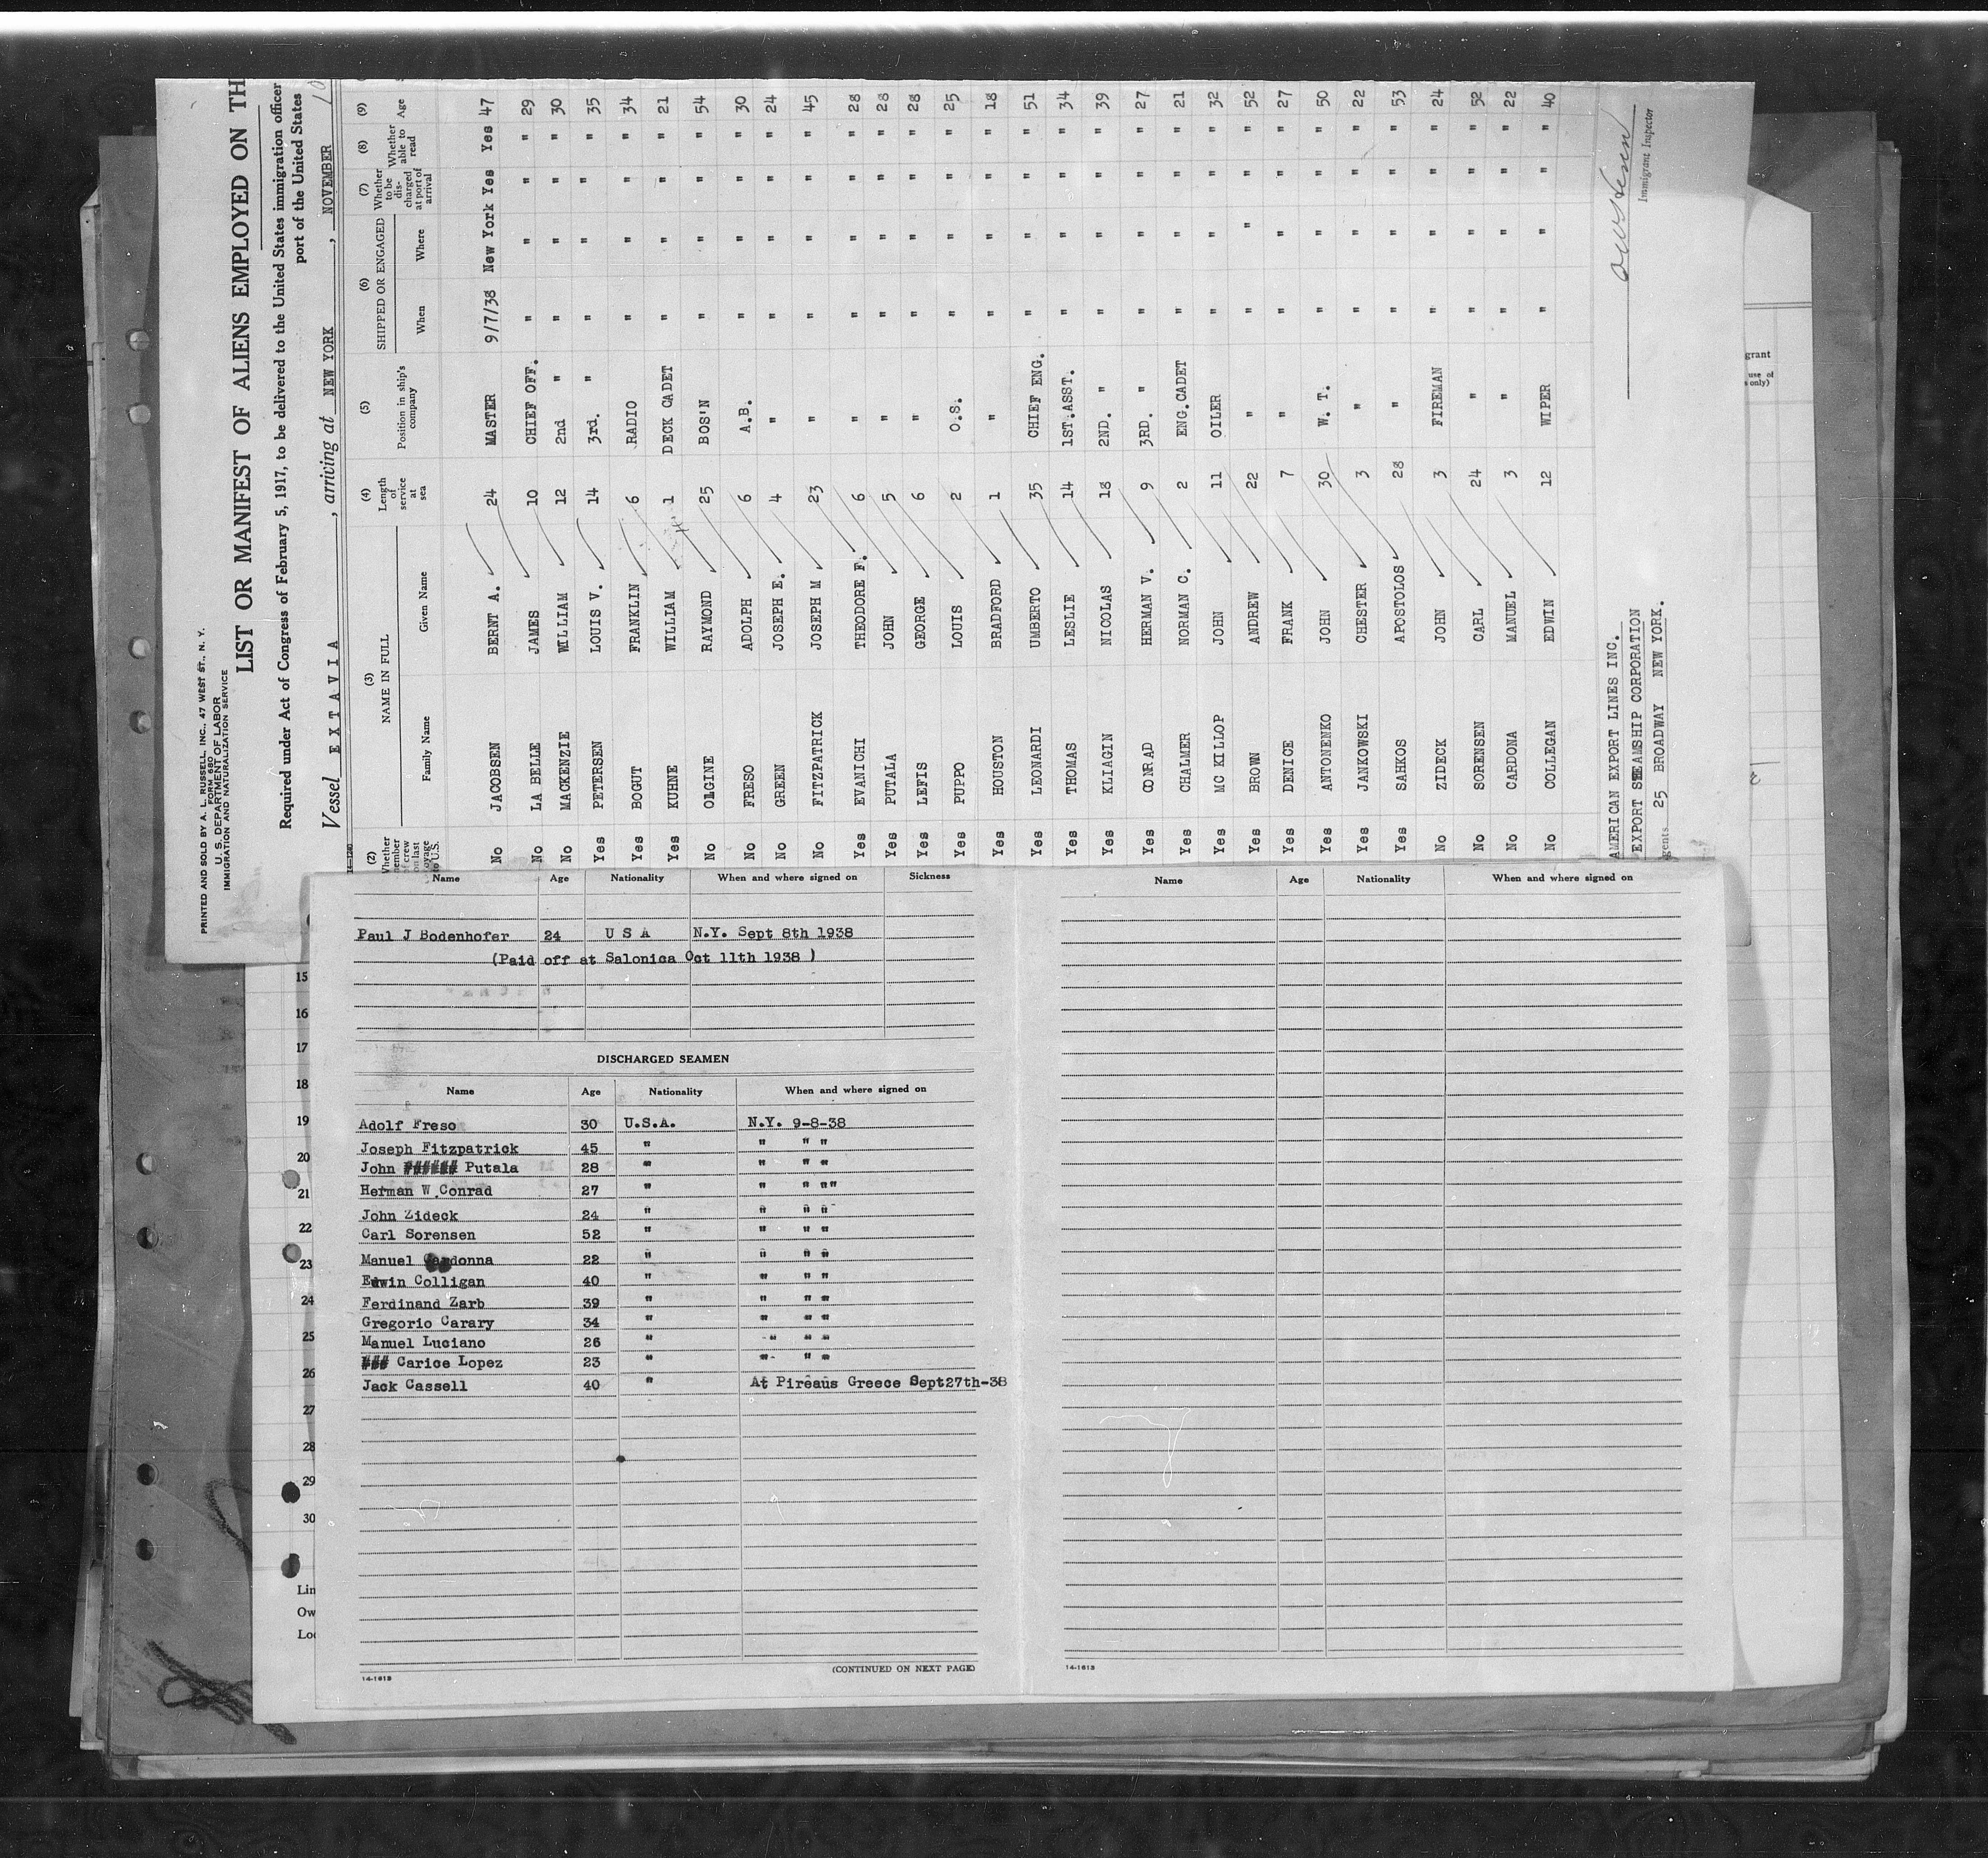 PRINTED AND SOLD BY A. L. RUSSELL, INC., 47 WEST ST., N. Y.
FORM 680
U. S. DEPARTMENT OF LABOR
IMMIGRATION AND NATURALIZATION SERVICE
LIST OR MANIFEST OF ALIENS EMPLOYED ON TH
Required under Act of Congress of February 5, 1917, to be delivered to the United States immigration officer
port of the United States
Vessel EXTAVIA, arriving at NEW YORK, NOVEMBER 10
(2) (3) (4) (5) (6) (7) (8) (9)
Whether member of crew on last voyage to U.S. NAME IN FULL Family Name Given Name Length of service at sea Position in ship's company SHIPPED OR ENGAGED When Where Whether to be discharged at port of arrival Whether able to read Age
No JACOBSEN BERNT A. 24 MASTER 9/7/38 New York Yes Yes 47
No LA BELLE JAMES 10 CHIEF OFF. " " " " 29
No MACKENZIE WILLIAM 12 2nd " " " " " 30
Yes PETERSEN LOUIS V. 14 3rd. " " " " " 35
Yes BOGUT FRANKLIN 6 RADIO " " " " 34
Yes KUHNE WILLIAM 1 DECK CADET " " " " 21
No OLGINE RAYMOND 25 BOS'N " " " " 54
No FRESO ADOLPH 6 A.B. " " " " 30
No GREEN JOSEPH E. 4 " " " " " 24
No FITZPATRICK JOSEPH M 23 " " " " " 45
Yes EVANICHI THEODORE F. 6 " " " " " 28
Yes PUTALA JOHN 5 " " " " " 28
Yes LEFIS GEORGE 6 " " " " " 28
Yes PUPPO LOUIS 2 O.S. " " " " 25
Yes HOUSTON BRADFORD 1 " " " " " 18
Yes LEONARDI UMBERTO 35 CHIEF ENG. " " " " 51
Yes THOMAS LESLIE 14 1ST.ASST. " " " " 34
Yes KLIAGIN NICOLAS 18 2ND. " " " " " 39
Yes CONRAD HERMAN V. 9 3RD. " " " " " 27
Yes CHALMER NORMAN C. 2 ENG.CADET " " " " 21
Yes MC KILLOP JOHN 11 OILER " " " " 32
Yes BROWN ANDREW 22 " " " " " 52
Yes DENICE FRANK 7 " " " " " 27
Yes ANTONENKO JOHN 30 W. T. " " " " 50
Yes JANKOWSKI CHESTER 3 " " " " " 22
Yes SAHKOS APOSTOLOS 28 " " " " " 53
No ZIDECK JOHN 3 FIREMAN " " " " 24
No SORENSEN CARL 24 " " " " " 52
No CARDONA MANUEL 3 " " " " " 22
No COLLEGAN EDWIN 12 WIPER " " " " 40
AMERICAN EXPORT LINES INC.
EXPORT STEAMSHIP CORPORATION
gents 25 BROADWAY NEW YORK.
Immigrant Inspector
grant
use of
s only)
Name Age Nationality When and where signed on Sickness
Paul J Bodenhofer 24 U S A N.Y. Sept 8th 1938
(Paid off at Salonica Oct 11th 1938 )
DISCHARGED SEAMEN
Name Age Nationality When and where signed on
Adolf Freso 30 U.S.A. N.Y. 9-8-38
Joseph Fitzpatrick 45 " " " "
John ###### Putala 28 " " " "
Herman W Conrad 27 " " " ""
John Zideck 24 " " " "
Carl Sorensen 52 " " " "
Manuel Cardonna 22 " " " "
Edwin Colligan 40 " " " "
Ferdinand Zarb 39 " " " "
Gregorio Carary 34 " " " "
Manuel Luciano 26 " " " "
### Carice Lopez 23 " " " "
Jack Cassell 40 " At Pireaus Greece Sept27th-38
14-1613
(CONTINUED ON NEXT PAGE)
Name Age Nationality When and where signed on
14-1613
15
16
17
18
19
20
21
22
23
24
25
26
27
28
29
30
Lin
Ow
Loc